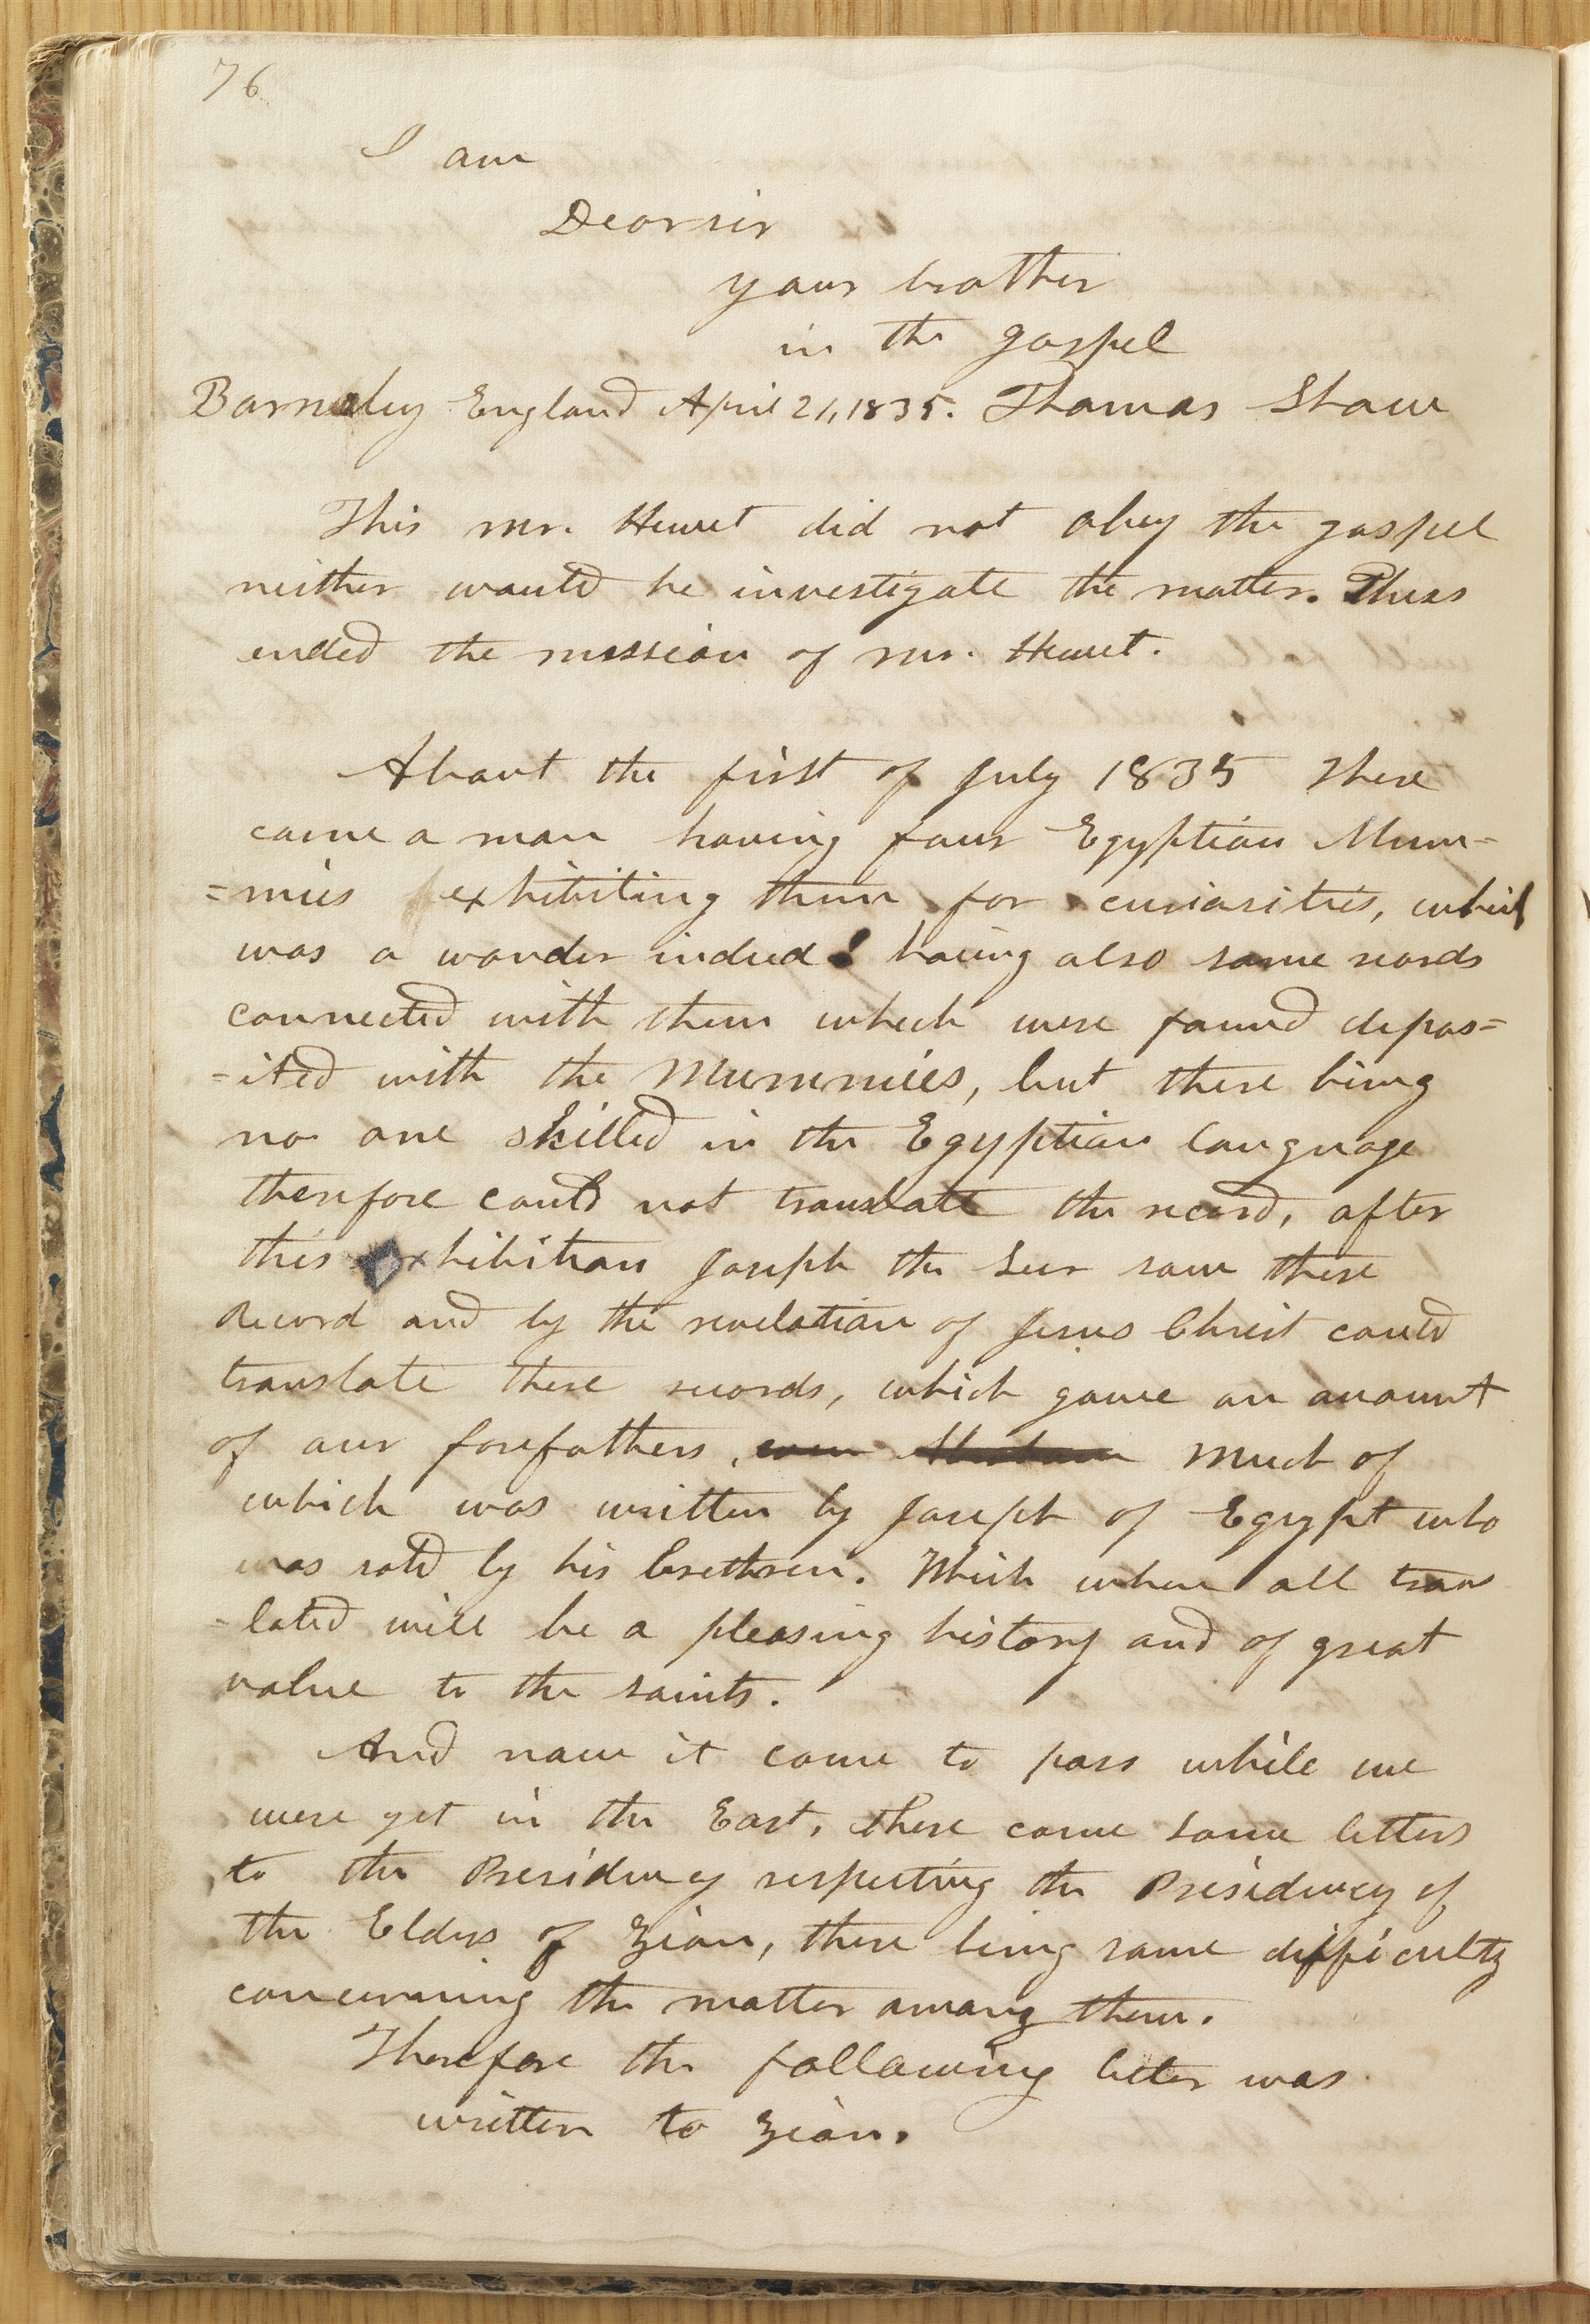 76
I am
Dear sir
your brother
in the gospel
Barnsley England April 21, 1835. Thomas Shaw
This mr. Hewet did not obey the gospel
neither would he investigate the matter. Thus
ended the mission of mr. Hewet.
About the first of July 1835 there
came a man having four Egyptian Mum=
=mies exhibiting them for curiosities, which
was a wonder indeed! having also some records
connected with them which were found depos=
=ited with the Mummies, but there being
no one skilled in the Egyptian language
therefore could not translate the record, after
this exhibition Joseph the Seer saw these
Record and by the revelation of Jesus Christ could
translate these records, which gave an account
of our forefathers, even Abraham Much of
which was written by Joseph of Egypt who
was sold by his brethren. Which when all trans
=lated will be a pleasing history and of great
value to the saints.
And now it came to pass while we
were yet in the East, there came some letters
to the Presidency respecting the Presidency of
the Elders of Zion, there being some difficulty
concerning the matter among them.
Therefore the following letter was
written to Zion.